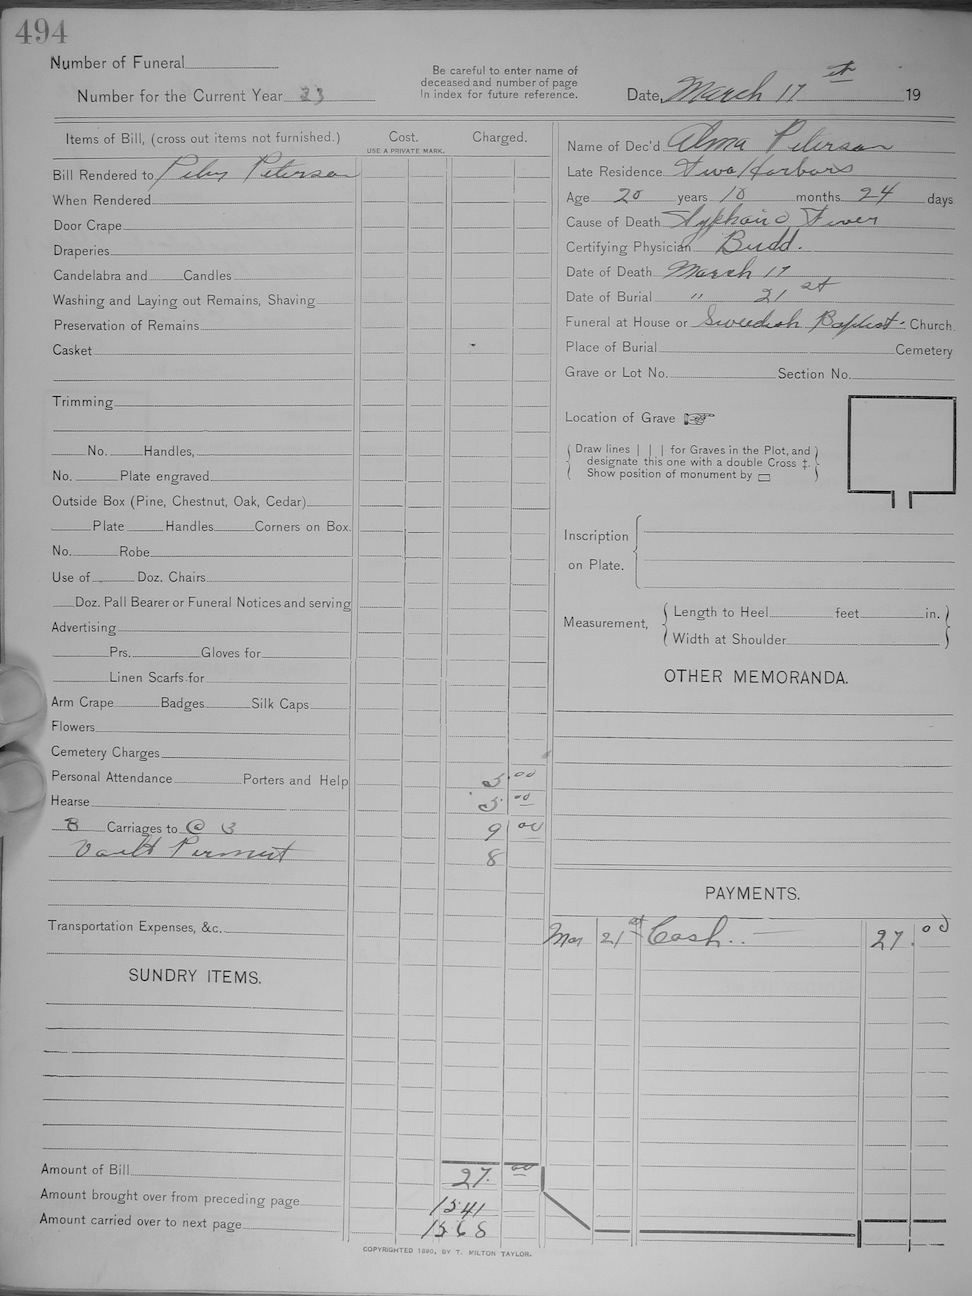 494
Number of Funeral
Number for the Current Year 23
Be careful to enter name of
deceased and number of page
in index for future reference.
Date March 17th 19
Items of Bill, (cross out items not furnished.) Cost. Charged.
USE A PRIVATE MARK.
Bill Rendered to Peterson
When Rendered
Door Crape
Draperies
Candelabra and Candles
Washing and Laying out Remains, Shaving
Preservation of Remains
Casket
Trimming
No. Handles,
No. Plate engraved
Outside Box (Pine, Chestnut, Oak, Cedar)
Plate Handles Corners on Box.
No. Robe
Use of Doz. Chairs
Doz. Pall Bearer or Funeral Notices and serving
Advertising
Prs. Gloves for
Linen Scarfs for
Arm Crape Badges Silk Caps
Flowers
Cemetery Charges
Personal Attendance Porters and Help 5.00
Hearse 5.00
3 Carriages to @ 3 9 00
Vault Permit 8
Transportation Expenses, &c.
SUNDRY ITEMS.
Amount of Bill 27.00
Amount brought over from preceding page 1541
Amount carried over to next page 1568
COPYRIGHTED 1890, BY T. MILTON TAYLOR.
Name of Dec'd Alma Peterson
Late Residence Two Harbors
Age 20 years 10 months 24 days
Cause of Death Typhoid Fever
Certifying Physician Budd.
Date of Death March 17
Date of Burial " 21st
Funeral at House or Swedish Baptist. Church.
Place of Burial Cemetery
Grave or Lot No. Section No.
Location of Grave ☞
Draw lines | | | for Graves in the Plot, and
designate this one with a double Cross ‡.
Show position of monument by ▭
Inscription
on Plate.
Measurement, Length to Heel feet in.
Width at Shoulder
OTHER MEMORANDA.
PAYMENTS.
Mar 21st Cash.. 27.00